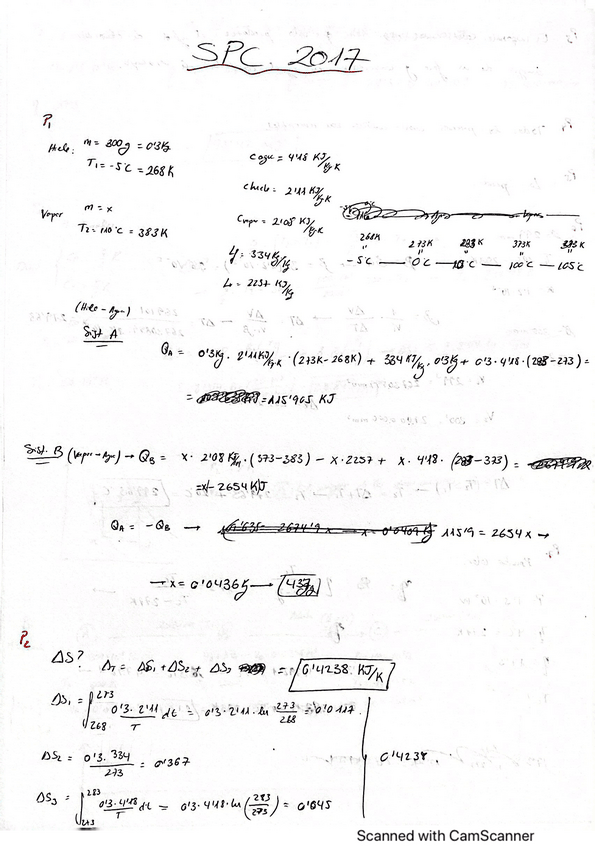 SPC. 2017
P1
Hielo: m = 300g = 0'3Kg
T1 = -5°C = 268K
Vapor m = x
T2 = 110°C = 383K
Cagu = 4'18 KJ/Kg·K
Chielo = 2'11 KJ/Kg·K
Cvapor = 2'08 KJ/Kg·K
Lf = 334 KJ/Kg
Lv = 2257 KJ/Kg
268K 273K 283K 373K 383K
-5°C — 0°C — 10°C — 100°C — 105°C
(Hielo - Agua)
Sist A
QA = 0'3Kg · 2'11 KJ/Kg·K · (273K - 268K) + 334 KJ/Kg · 0'3Kg + 0'3 · 4'18 · (283 - 273) =
= 115'905 KJ
Sist. B (Vapor - Agu) → QB = x · 2'08 · (373 - 383) - x · 2257 + x · 4'18 · (283 - 373) =
= x · - 2654 KJ
QA = - QB → 115'9 = 2654 x →
→ x = 0'0436Kg →
P2
ΔS? ΔT = ΔS1 + ΔS2 + ΔS3 = 0'4238 KJ/K
ΔS1 = ∫ 268 273 0'3·2'11/T dt = 0'3·2'11·ln 273/268 = 0'0117
ΔS2 = 0'3·334/273 = 0'367
0'4238
ΔS3 = ∫ 273 283 0'3·4'18/T dt = 0'3·4'18·ln(283/273) = 0'045
Scanned with CamScanner